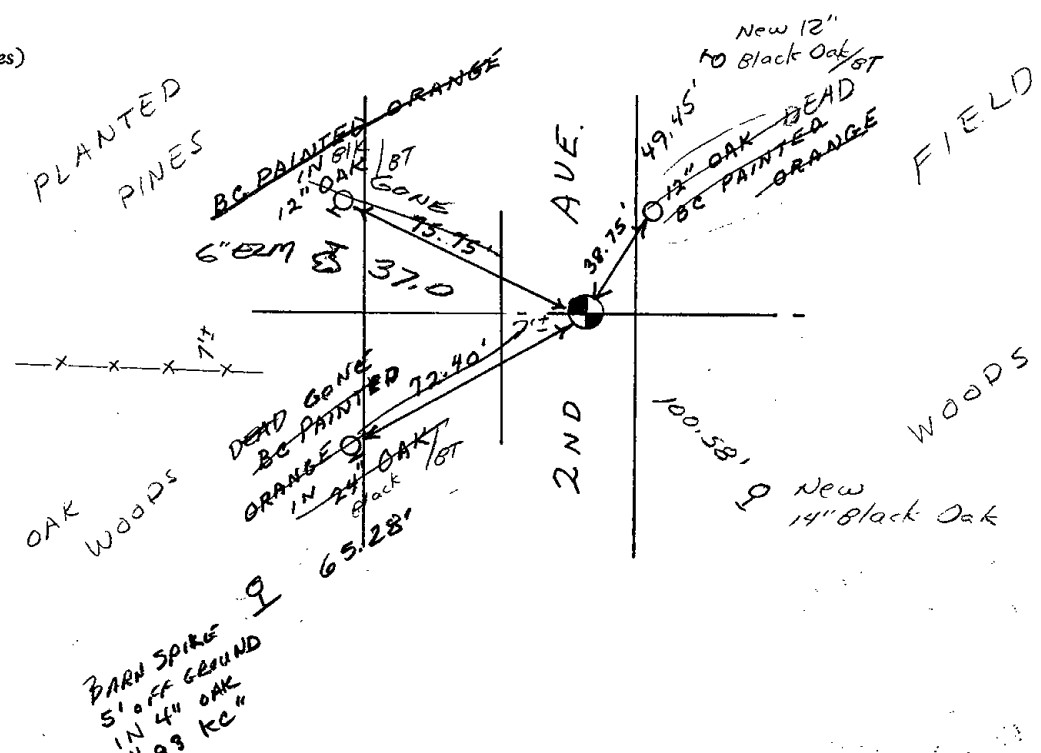 es)
PLANTED
PINES
BC PAINTED ORANGE
IN Blk
12" OAK / BT
GONE
75.75'
6" ELM
37.0
7'±
AVE.
2ND
New 12"
Black Oak/BT
49.45'
12" OAK DEAD
BC PAINTED
ORANGE
38.75'
FIELD
7'±
DEAD GONE
BC PAINTED
ORANGE
IN 24" OAK / BT
Black
72.40'
65.28'
OAK
WOODS
100.58'
New
14" Black Oak
WOODS
BARN SPIKE
5' OFF GROUND
IN 4" OAK
98 KC"